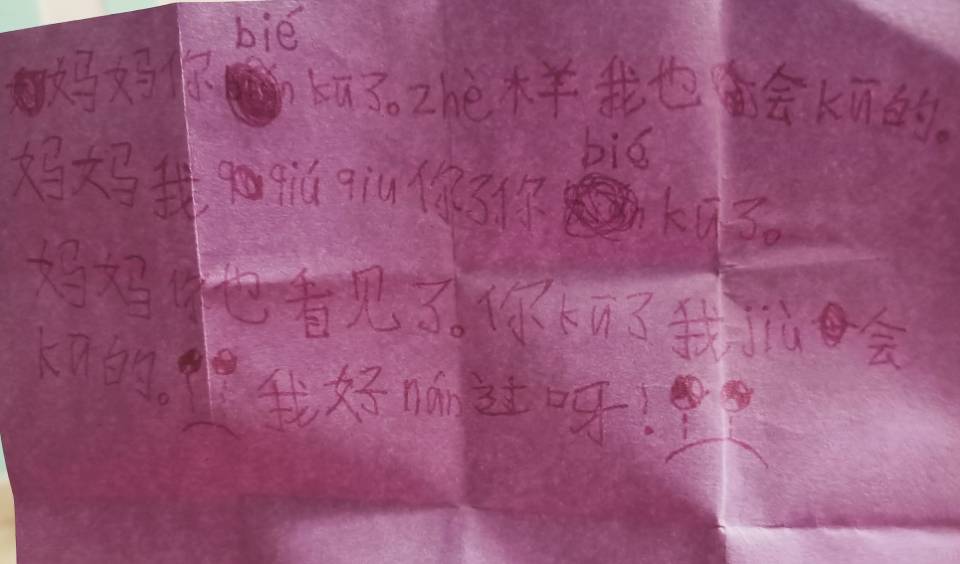 bié
妈妈你 kū了。zhè样我也会kū的。
bié
妈妈我 qiú qiu你了你 kū了。
妈妈你也看见了。你kū了我jiù会
kū的。
我好nán过呀!